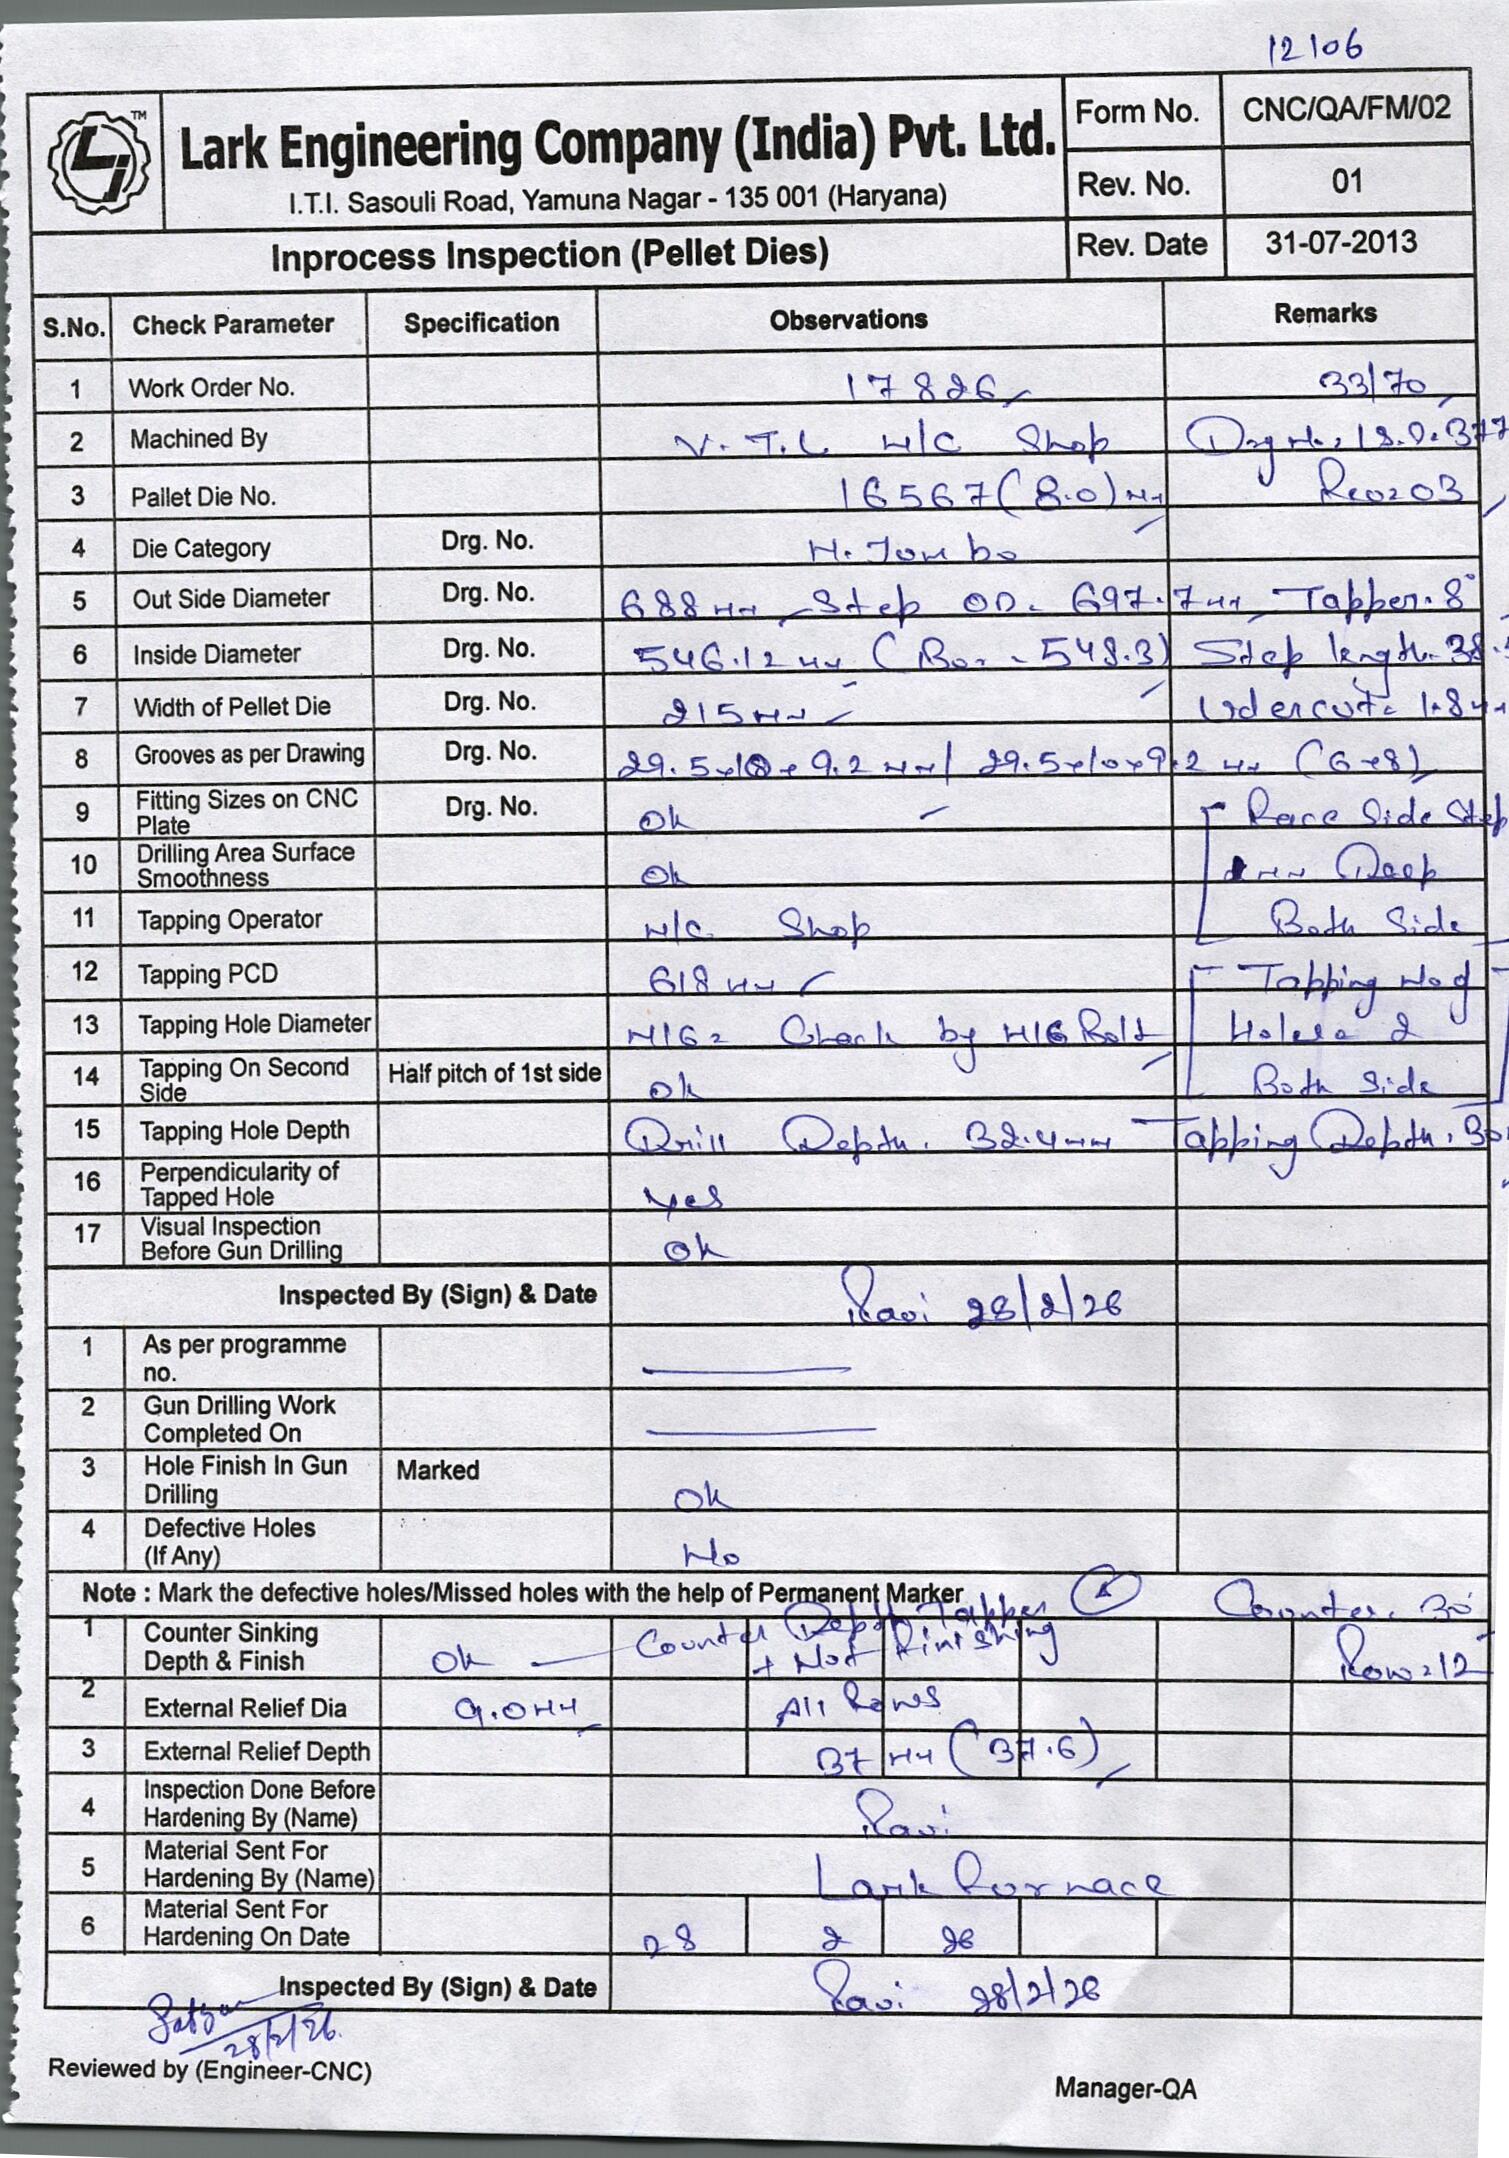 12106
TM
Lark Engineering Company (India) Pvt. Ltd.
I.T.I. Sasouli Road, Yamuna Nagar - 135 001 (Haryana)
Form No. CNC/QA/FM/02
Rev. No. 01
Inprocess Inspection (Pellet Dies)
Rev. Date 31-07-2013
S.No. Check Parameter Specification Observations Remarks
1 Work Order No. 17826 33/70
2 Machined By V.T.L M/C Shop Drg No.
3 Pallet Die No. 16567 (8.0) Rev=03
4 Die Category Drg. No.
5 Out Side Diameter Drg. No. 688 mm Step OD. 697.7 mm Tapper. 8°
6 Inside Diameter Drg. No. 546.12 mm Step length.
7 Width of Pellet Die Drg. No. 215 mm Udercut= 1.8
8 Grooves as per Drawing Drg. No. 29.5x10x9.2 mm / 29.5x10x9.2 mm (6x8)
9 Fitting Sizes on CNC
Plate Drg. No. Ok Race Side Step
10 Drilling Area Surface
Smoothness Ok mm Deep
11 Tapping Operator M/C Shop Both Side
12 Tapping PCD 618 mm Tapping No of
13 Tapping Hole Diameter M16= Check by M16 Bolt Holes= 2
14 Tapping On Second
Side Half pitch of 1st side Ok Both Side
15 Tapping Hole Depth Drill Depth. 32.4 mm Tapping Depth. 30
16 Perpendicularity of
Tapped Hole Yes
17 Visual Inspection
Before Gun Drilling Ok
Inspected By (Sign) & Date Ravi 28/2/26
1 As per programme
no.
2 Gun Drilling Work
Completed On
3 Hole Finish In Gun
Drilling Marked Ok
4 Defective Holes
(If Any) No
Note : Mark the defective holes/Missed holes with the help of Permanent Marker
Counter. 30
1 Counter Sinking
Depth & Finish Ok Counter Depth Tapper
+ Not Finishing Row=12
2 External Relief Dia 9.0 mm All Rows
3 External Relief Depth 37 mm (37.6)
4 Inspection Done Before
Hardening By (Name) Ravi
5 Material Sent For
Hardening By (Name) Lark Furnace
6 Material Sent For
Hardening On Date 28 2 26
Inspected By (Sign) & Date Ravi 28/2/26
28/2/26.
Reviewed by (Engineer-CNC)
Manager-QA